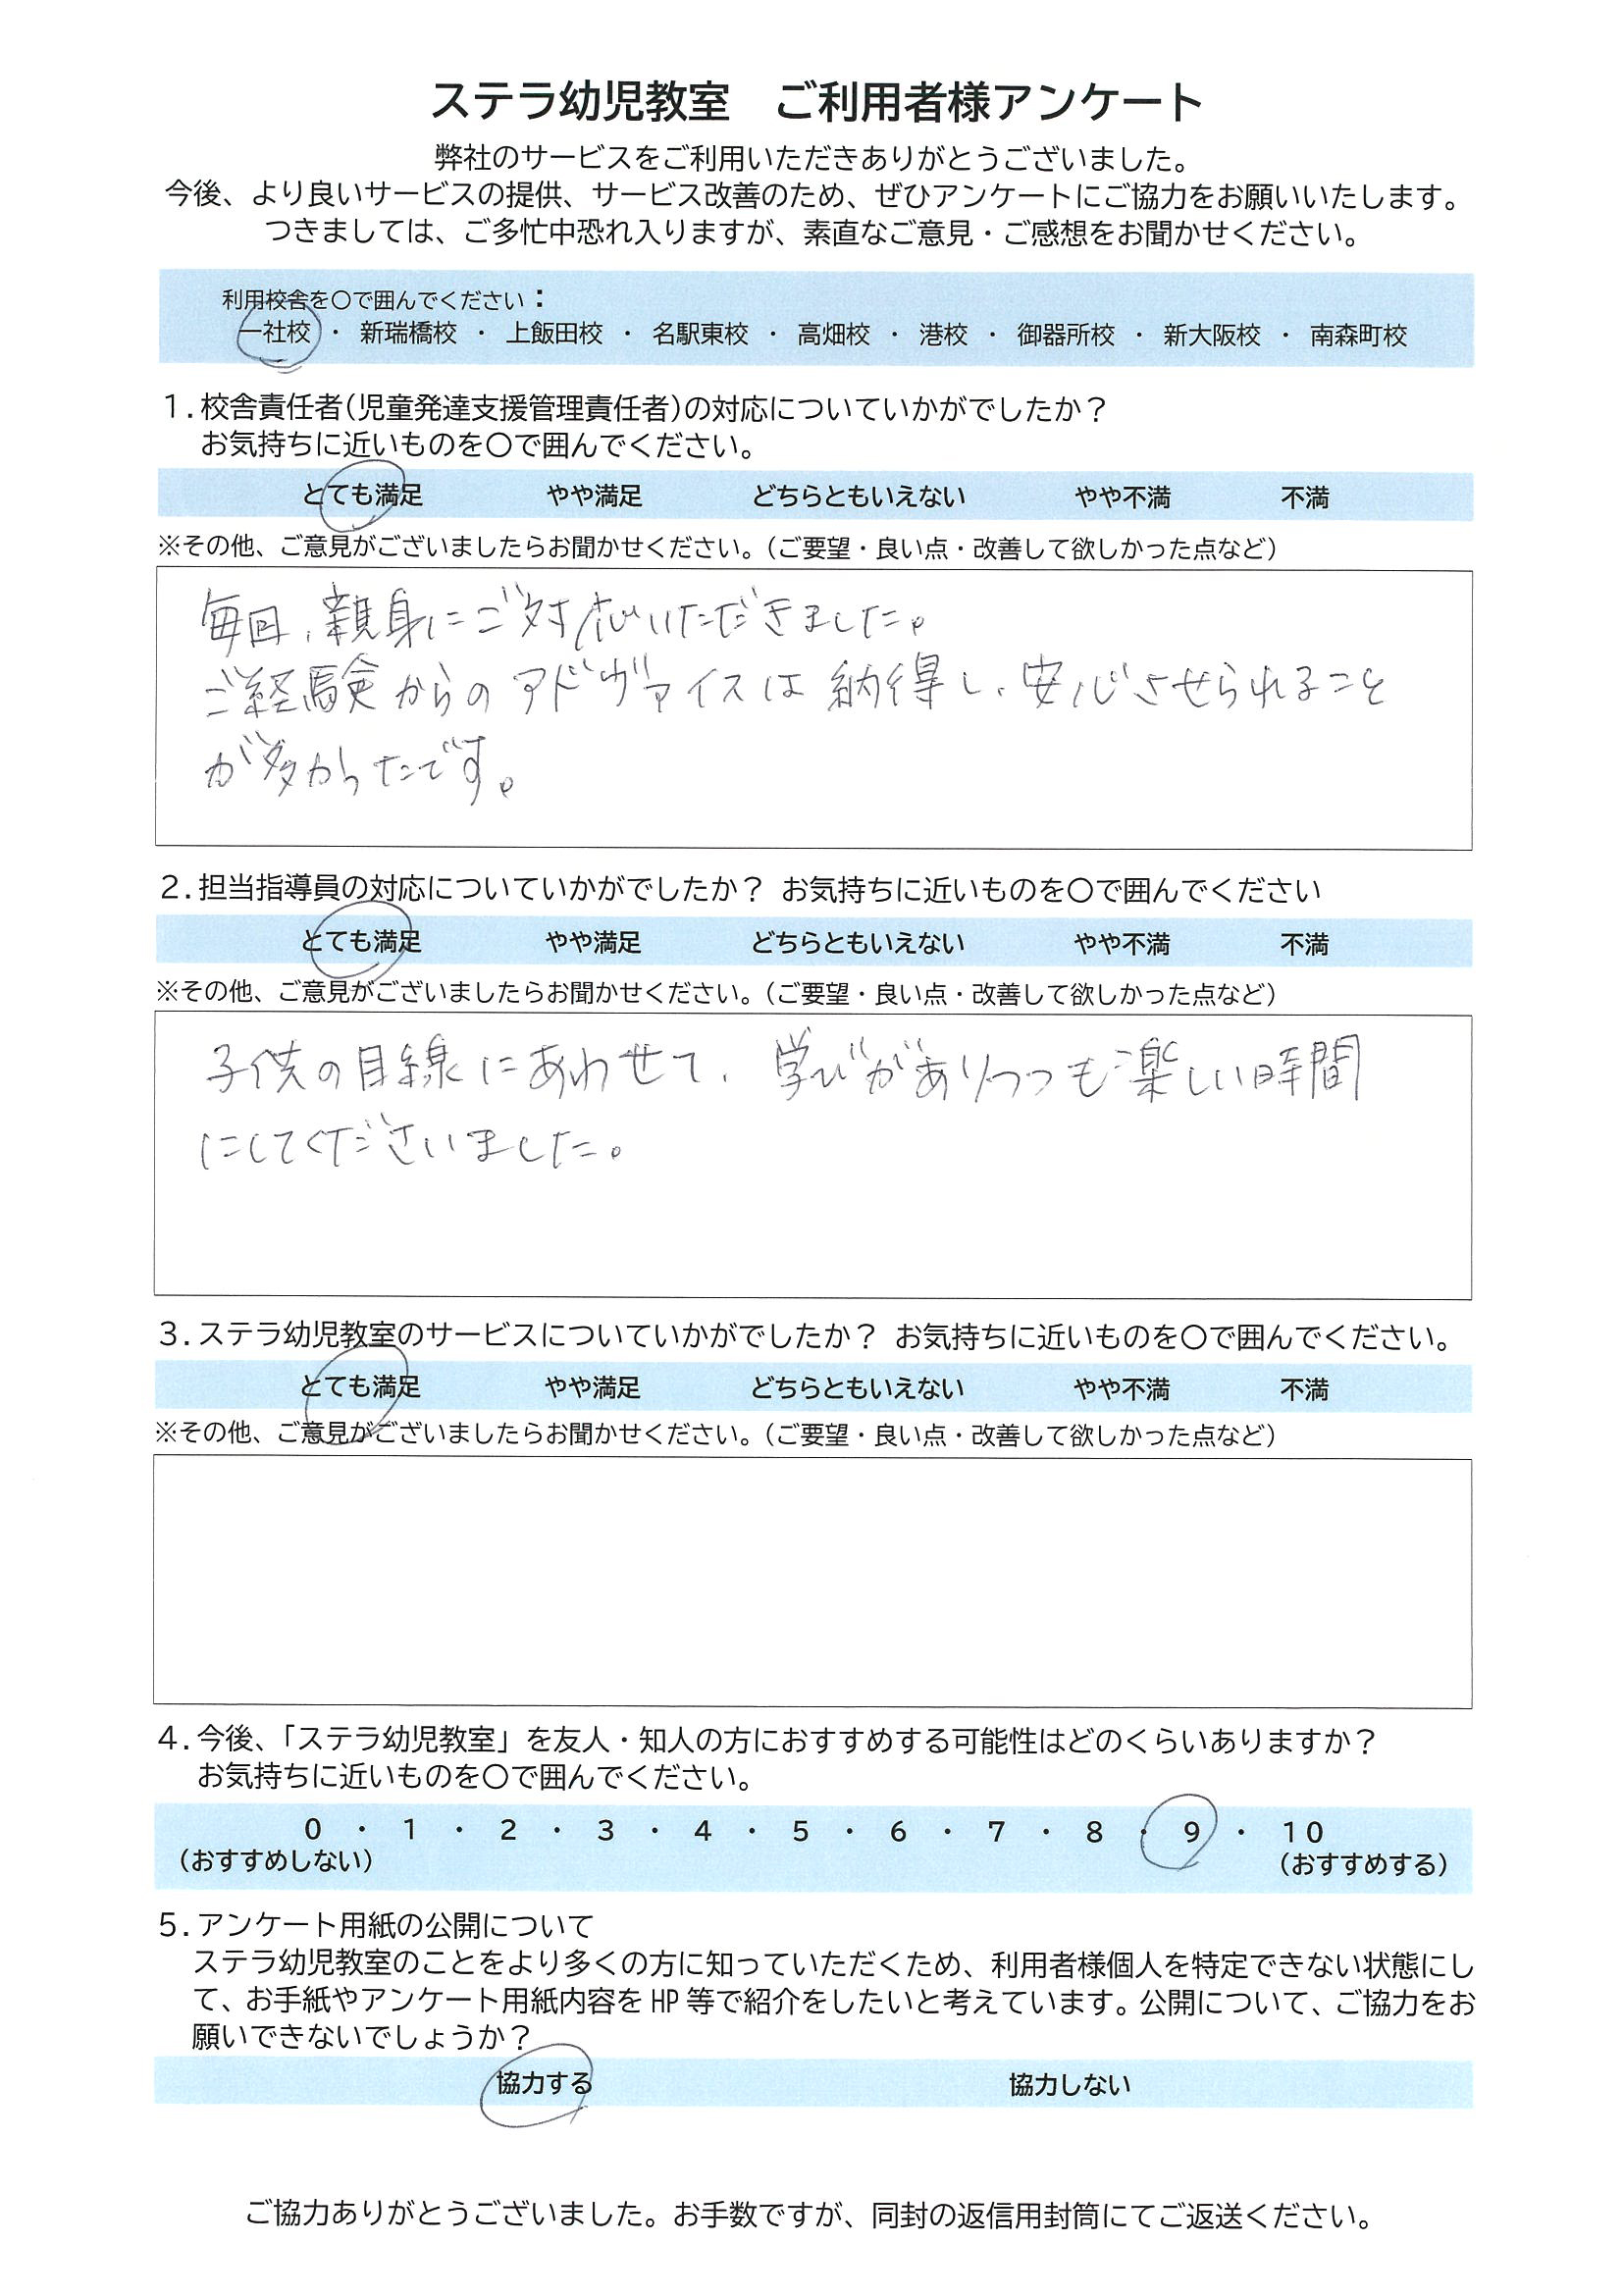 ステラ幼児教室　ご利用者様アンケート
弊社のサービスをご利用いただきありがとうございました。
今後、より良いサービスの提供、サービス改善のため、ぜひアンケートにご協力をお願いいたします。
つきましては、ご多忙中恐れ入りますが、素直なご意見・ご感想をお聞かせください。
利用校舎を〇で囲んでください：
一社校 ・ 新瑞橋校 ・ 上飯田校 ・ 名駅東校 ・ 高畑校 ・ 港校 ・ 御器所校 ・ 新大阪校 ・ 南森町校
１．校舎責任者（児童発達支援管理責任者）の対応についていかがでしたか？
お気持ちに近いものを〇で囲んでください。
とても満足 やや満足 どちらともいえない やや不満 不満
※その他、ご意見がございましたらお聞かせください。（ご要望・良い点・改善して欲しかった点など）
毎回、親身にご対応いただきました。
ご経験からのアドヴァイスは納得し、安心させられること
が多かったです。
２．担当指導員の対応についていかがでしたか？ お気持ちに近いものを〇で囲んでください
とても満足 やや満足 どちらともいえない やや不満 不満
※その他、ご意見がございましたらお聞かせください。（ご要望・良い点・改善して欲しかった点など）
子供の目線にあわせて、学びがありつつも楽しい時間
にしてくださいました。
３．ステラ幼児教室のサービスについていかがでしたか？ お気持ちに近いものを〇で囲んでください。
とても満足 やや満足 どちらともいえない やや不満 不満
※その他、ご意見がございましたらお聞かせください。（ご要望・良い点・改善して欲しかった点など）
４．今後、「ステラ幼児教室」を友人・知人の方におすすめする可能性はどのくらいありますか？
お気持ちに近いものを〇で囲んでください。
０ ・ １ ・ ２ ・ ３ ・ ４ ・ ５ ・ ６ ・ ７ ・ ８ ・ ９ ・ １０
（おすすめしない） （おすすめする）
５．アンケート用紙の公開について
ステラ幼児教室のことをより多くの方に知っていただくため、利用者様個人を特定できない状態にし
て、お手紙やアンケート用紙内容を HP 等で紹介をしたいと考えています。公開について、ご協力をお
願いできないでしょうか？
協力する 協力しない
ご協力ありがとうございました。お手数ですが、同封の返信用封筒にてご返送ください。